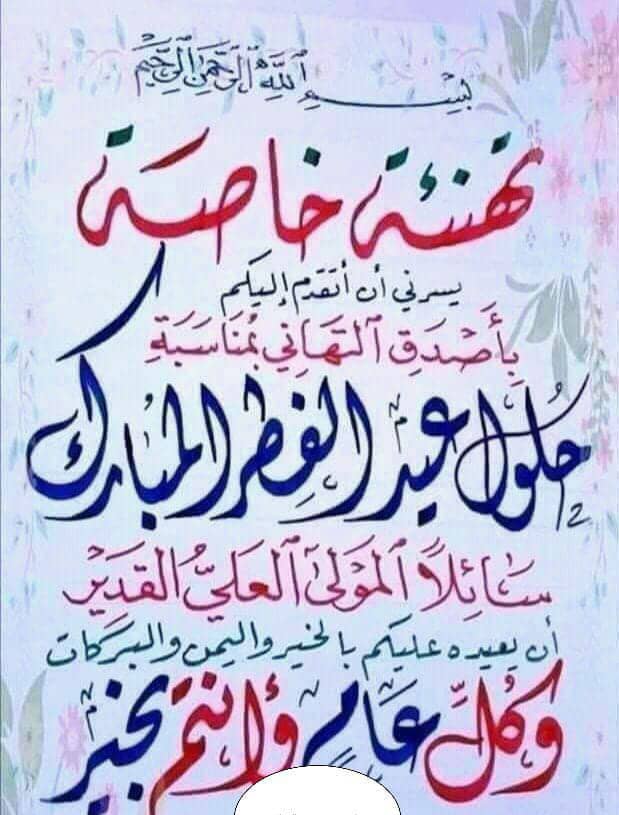 بِسْمِ ٱللَّهِ ٱلرَّحْمَنِ ٱلرَّحِيمِ
تهنئة خاصة
يسرني أن أتقدم إليكم
بِأَصْدَقِ ٱلتَّهَانِي بِمُنَاسَبَةِ
حُلول عيد الفِطر المبارك
سَائِلًا ٱلمَوْلَىٰ ٱلعَلِيُّ القَدِيرْ
أن يعيده عليكم بالخير واليمن والبركات
وَكُلُّ عَامٍ وَأنتم بخير